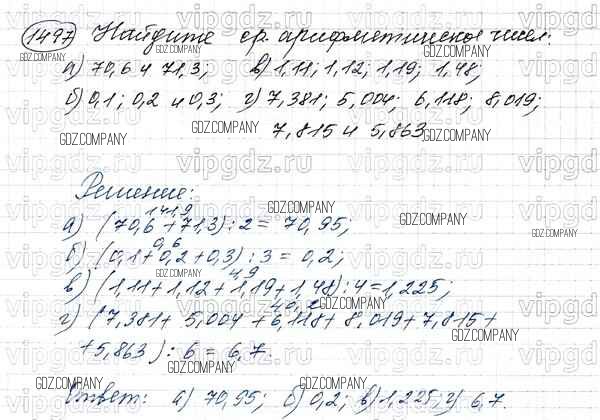 1497 Найдите ср. арифметическое чисел:
а) 70,6 и 71,3; в) 1,11; 1,12; 1,19; 1,48;
б) 0,1; 0,2 и 0,3; г) 7,381; 5,004; 6,118; 8,019;
7,815 и 5,863.
Решение:
141,9
а) (70,6 + 71,3) : 2 = 70,95;
0,6
б) (0,1 + 0,2 + 0,3) : 3 = 0,2;
4,9
в) (1,11 + 1,12 + 1,19 + 1,48) : 4 = 1,225;
40,2
г) (7,381 + 5,004 + 6,118 + 8,019 + 7,815 +
+ 5,863) : 6 = 6,7.
Ответ: а) 70,95; б) 0,2; в) 1,225; г) 6,7.
vipgdz.ru
GDZ.COMPANY